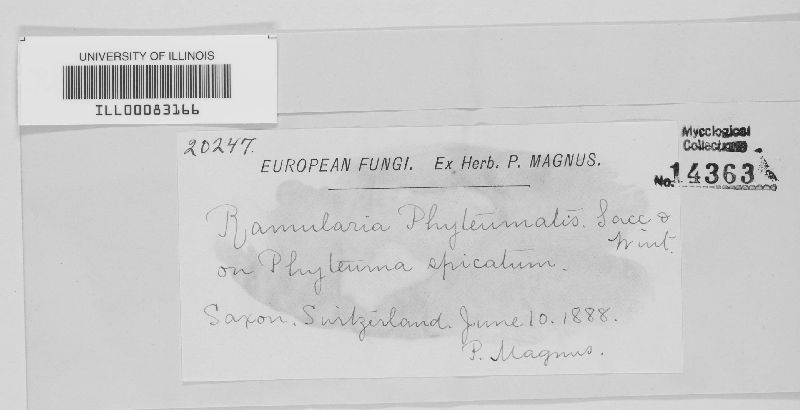 UNIVERSITY OF ILLINOIS
ILL00083166
20247.
EUROPEAN FUNGI. Ex Herb. P. MAGNUS.
Mycological
Collections
No. 14363
Ramularia Phyteumatis. Sacc &
Wint.
on Phyteuma spicatum.
Saxon. Switzerland. June 10. 1888.
P. Magnus.